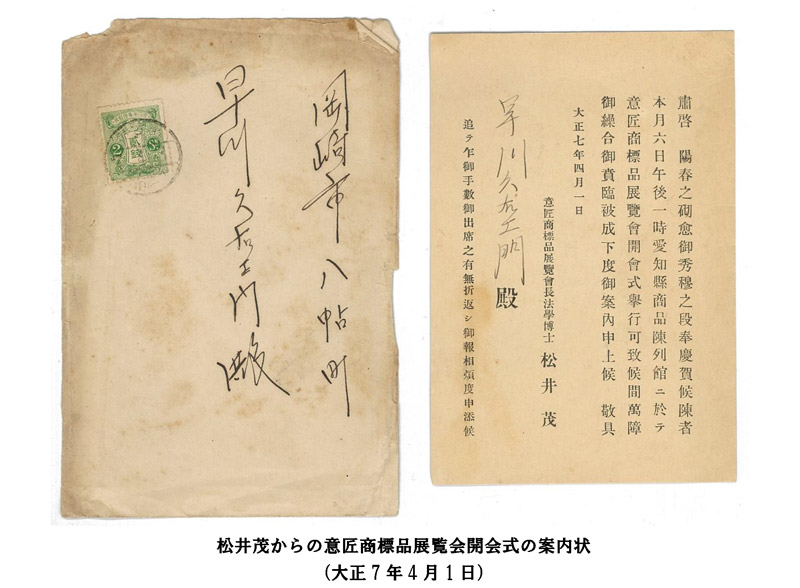 岡崎市八帖町
早川久右エ門殿
貳
2
肅啓 陽春之砌愈御秀穆之段奉慶賀候陳者
本月六日午後一時愛知縣商品陳列館ニ於テ
意匠商標品展覽會開會式擧行可致候間萬障
御繰合御賁臨被成下度御案內申上候 敬具
大正七年四月一日
意匠商標品展覽會長法學博士 松井茂
早川久右エ門殿
追テ乍御手數御出席之有無折返シ御報相煩度申添候
松井茂からの意匠商標品展覧会開会式の案内状
(大正7年4月1日)